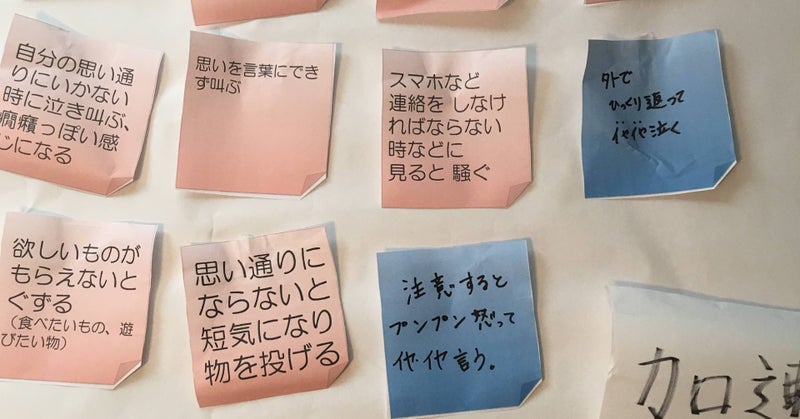 自分の思い通
りにいかない
時に泣き叫ぶ、
癇癪っぽい感
じになる
思いを言葉にでき
ず叫ぶ
スマホなど
連絡を しなけ
ればならない
時などに
見ると 騒ぐ
外で
ひっくり返って
イヤイヤ泣く
欲しいものが
もらえないと
ぐずる
（食べたいもの、遊
びたい物）
思い通りに
ならないと
短気になり
物を投げる
注意すると
プンプン怒って
イヤイヤ言う。
加速